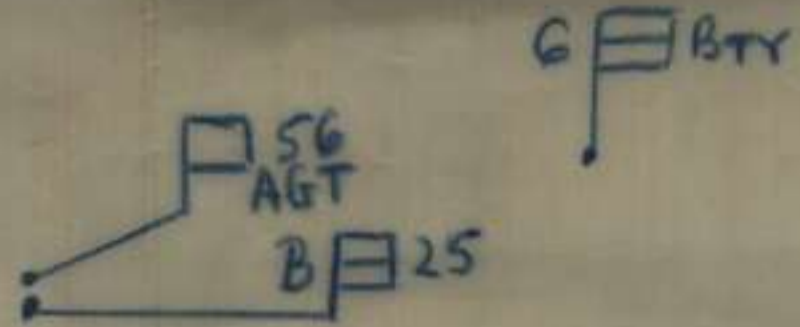 6 BTY
56
AGT
B 25